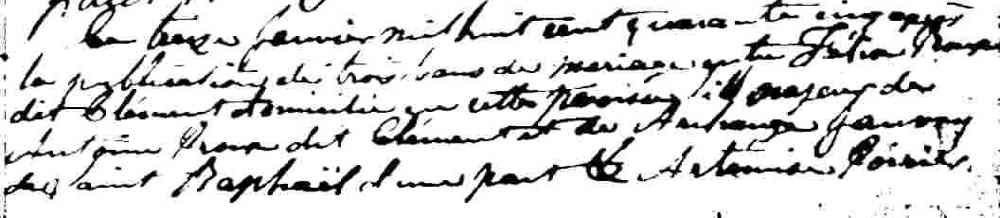 Le treize Janvier mil huit cent quarante cinq après
la publication de trois bans de mariage entre Félix Proux
dit Clément domicilié en cette paroisse fils majeur de
Antoine Proux dit Clément et de Archange Gauvry
de Saint Raphaël d'une part & Artémise Poirier